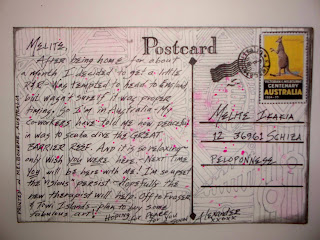 Postcard
MELITE,
After being home for about
a month I decided to get a little
R&R. Was tempted to head to England,
but wasn't sure if it was proper
timing. I'm in Australia. My
co-workers have told me how peaceful
in was to scuba dive the GREAT
BARRIER REEF. And it is so relaxing
only wish you were here. Next time
you will be here with me! I'm so upset
the visions persist. Hopefully the
new therapist will help. Off to Fraser
& Tiwi Islands - plan to buy some
fabulous art!
Hoping for Peace
for Vision
Alexander
XXXX
CENTENARY
AUSTRALIA
MELITE ILARIA
12 36961 SCHIZA
PELOPONNESE
MELBOURNE AUSTRALIA